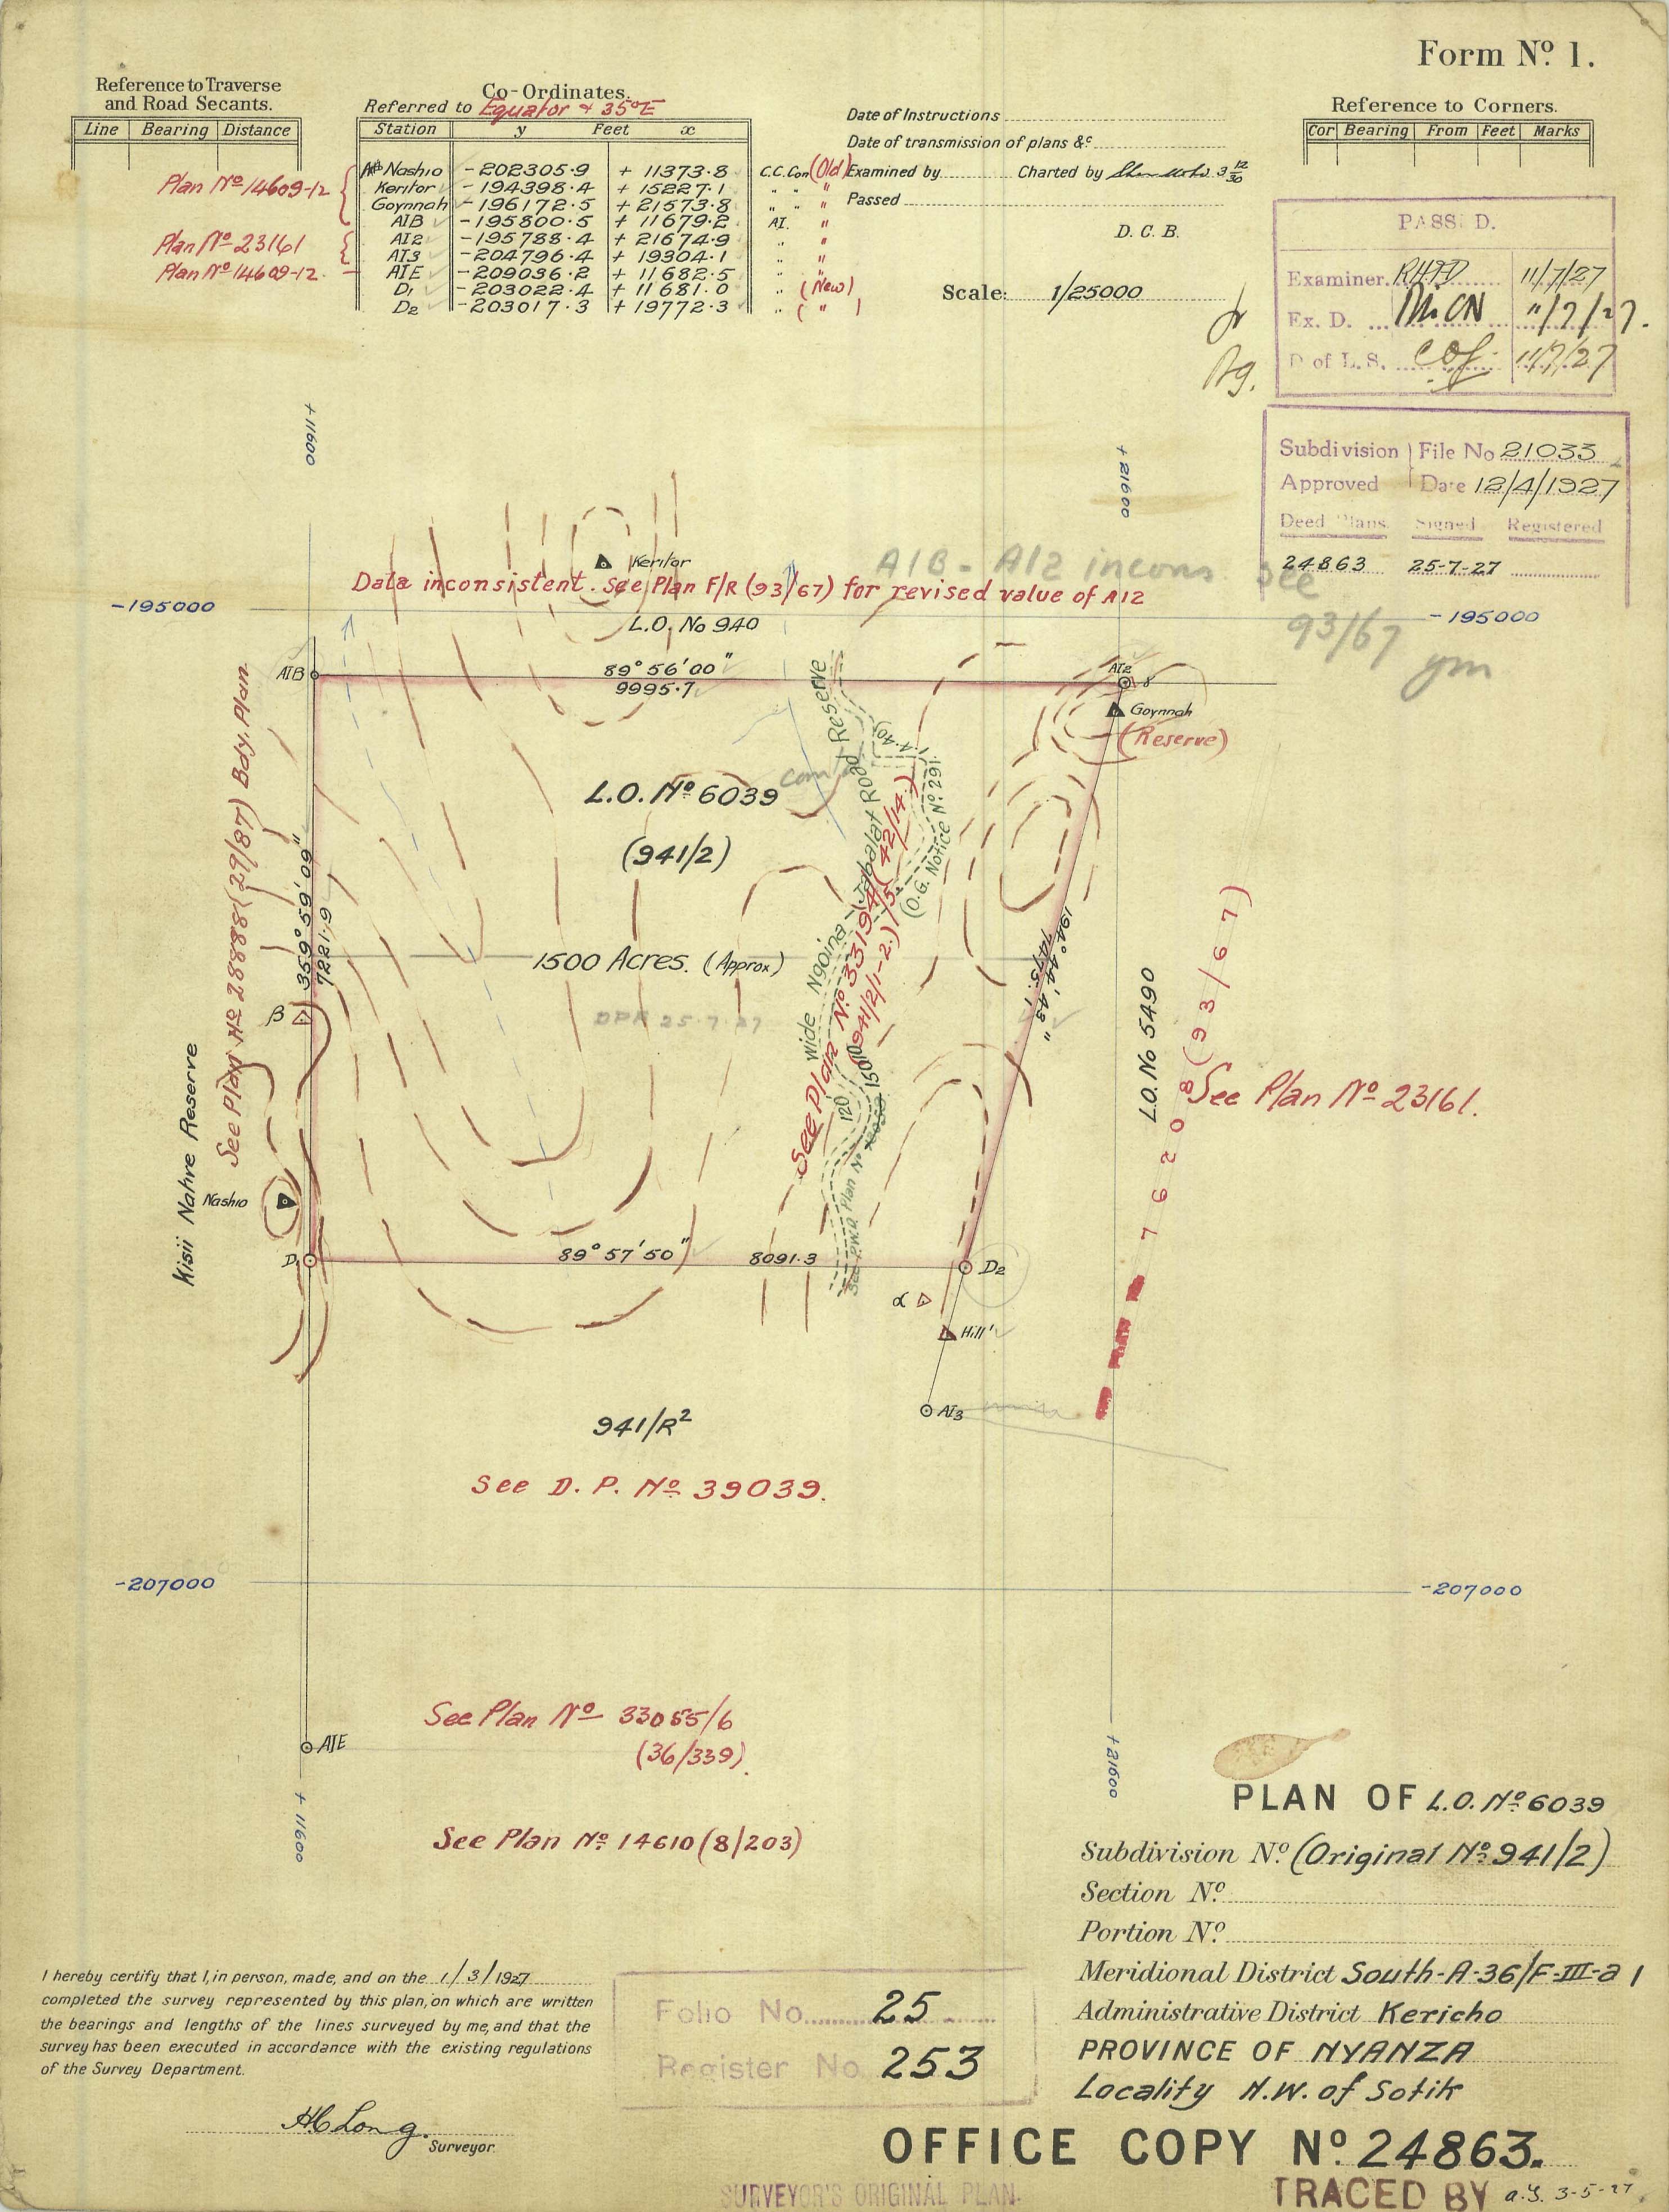 Form Nº 1.
Reference to Traverse
and Road Secants.
Line Bearing Distance
Co-Ordinates.
Referred to Equator & 35°E
Station y Feet x
Nashio -202305.9 + 11373.8 C.C.Con (Old)
Keritor -194398.4 + 15227.1 " " "
Goynnah -196172.5 + 21573.8 " " "
AIB -195800.5 + 11679.2 AI. "
AI2 -195788.4 + 21674.9 " "
AI3 -204796.4 + 19304.1 " "
AIE -209036.2 + 11682.5 " "
D1 -203022.4 + 11681.0 " (New)
D2 -203017.3 + 19772.3 " ( " )
Plan Nº 14609-12
Plan Nº 23161
Plan Nº 14609-12
Date of Instructions
Date of transmission of plans &c
Examined by Charted by 3 12/30
Passed
D. C. B.
Scale: 1/25000
Reference to Corners.
Cor Bearing From Feet Marks
PASSED.
Examiner. 11/7/27
Ex. D. "/7/27.
D of L.S. 11/7/27
Ag.
Subdivision File No 21033
Approved Date 12/4/1927
Deed Plans. Signed Registered
24863 25-7-27
+11600
+21600
Keritor
A1B - A12 incons see
93/67
Data inconsistent. See Plan F/R (93/67) for revised value of A12
-195000
-195000
L.O. No 940
AIB
89° 56' 00"
9995.7
AI2
Goynnah
(Reserve)
L.O. Nº 6039
(941/2)
1500 Acres. (Approx)
DPR 25.7.27
359° 59' 09"
7221.9
See Plan Nº 28888 (29/87) Bdy. Plan
Kisii Native Reserve
β
Nashio
D1
89° 57' 50"
8091.3
D2
α
Hill
AI3
194° 44' 48"
7475.1
wide Ngoina - Jabalat Road Reserve
See Plan Nº 33194 (42/14.)
(941/2/1-2.)
(O.G. Notice Nº 291
120
L.O. No 5490
76208 (93/67)
See Plan Nº 23161.
941/R2
See D. P. Nº 39039.
-207000
-207000
AIE
+ 11600
+21600
See Plan Nº 33055/6
(36/339).
See Plan Nº 14610 (8/203)
PLAN OF L.O. Nº 6039
Subdivision Nº (Original Nº 941/2)
Section Nº
Portion Nº
Meridional District South-A-36/F-III-a 1
Administrative District Kericho
PROVINCE OF NYANZA
Locality N.W. of Sotik
I hereby certify that I, in person, made, and on the 1/3/1927
completed the survey represented by this plan, on which are written
the bearings and lengths of the lines surveyed by me, and that the
survey has been executed in accordance with the existing regulations
of the Survey Department.
HC Long.
Surveyor.
Folio No. 25
Register No 253
OFFICE COPY Nº 24863.
SURVEYOR'S ORIGINAL PLAN.
TRACED BY a.y. 3-5-27.